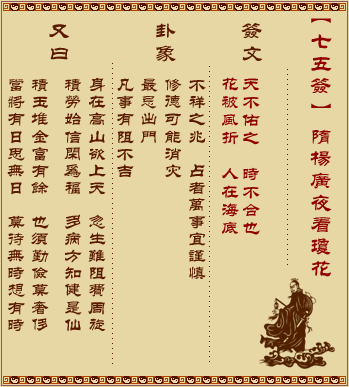 【七五簽】 隋楊廣夜看瓊花
簽文
天不佑之 時不合也
花被風折 人在海底
卦象
不祥之兆 占者萬事宜謹慎
修德可能消灾
最忌出門
凡事有阻不吉
又曰
身在高山欲上天 忽生難阻費周旋
積勞始信閑爲福 多病方知健是仙
積玉堆金富有餘 也須勤儉莫奢侈
當將有日思無日 莫待無時想有時